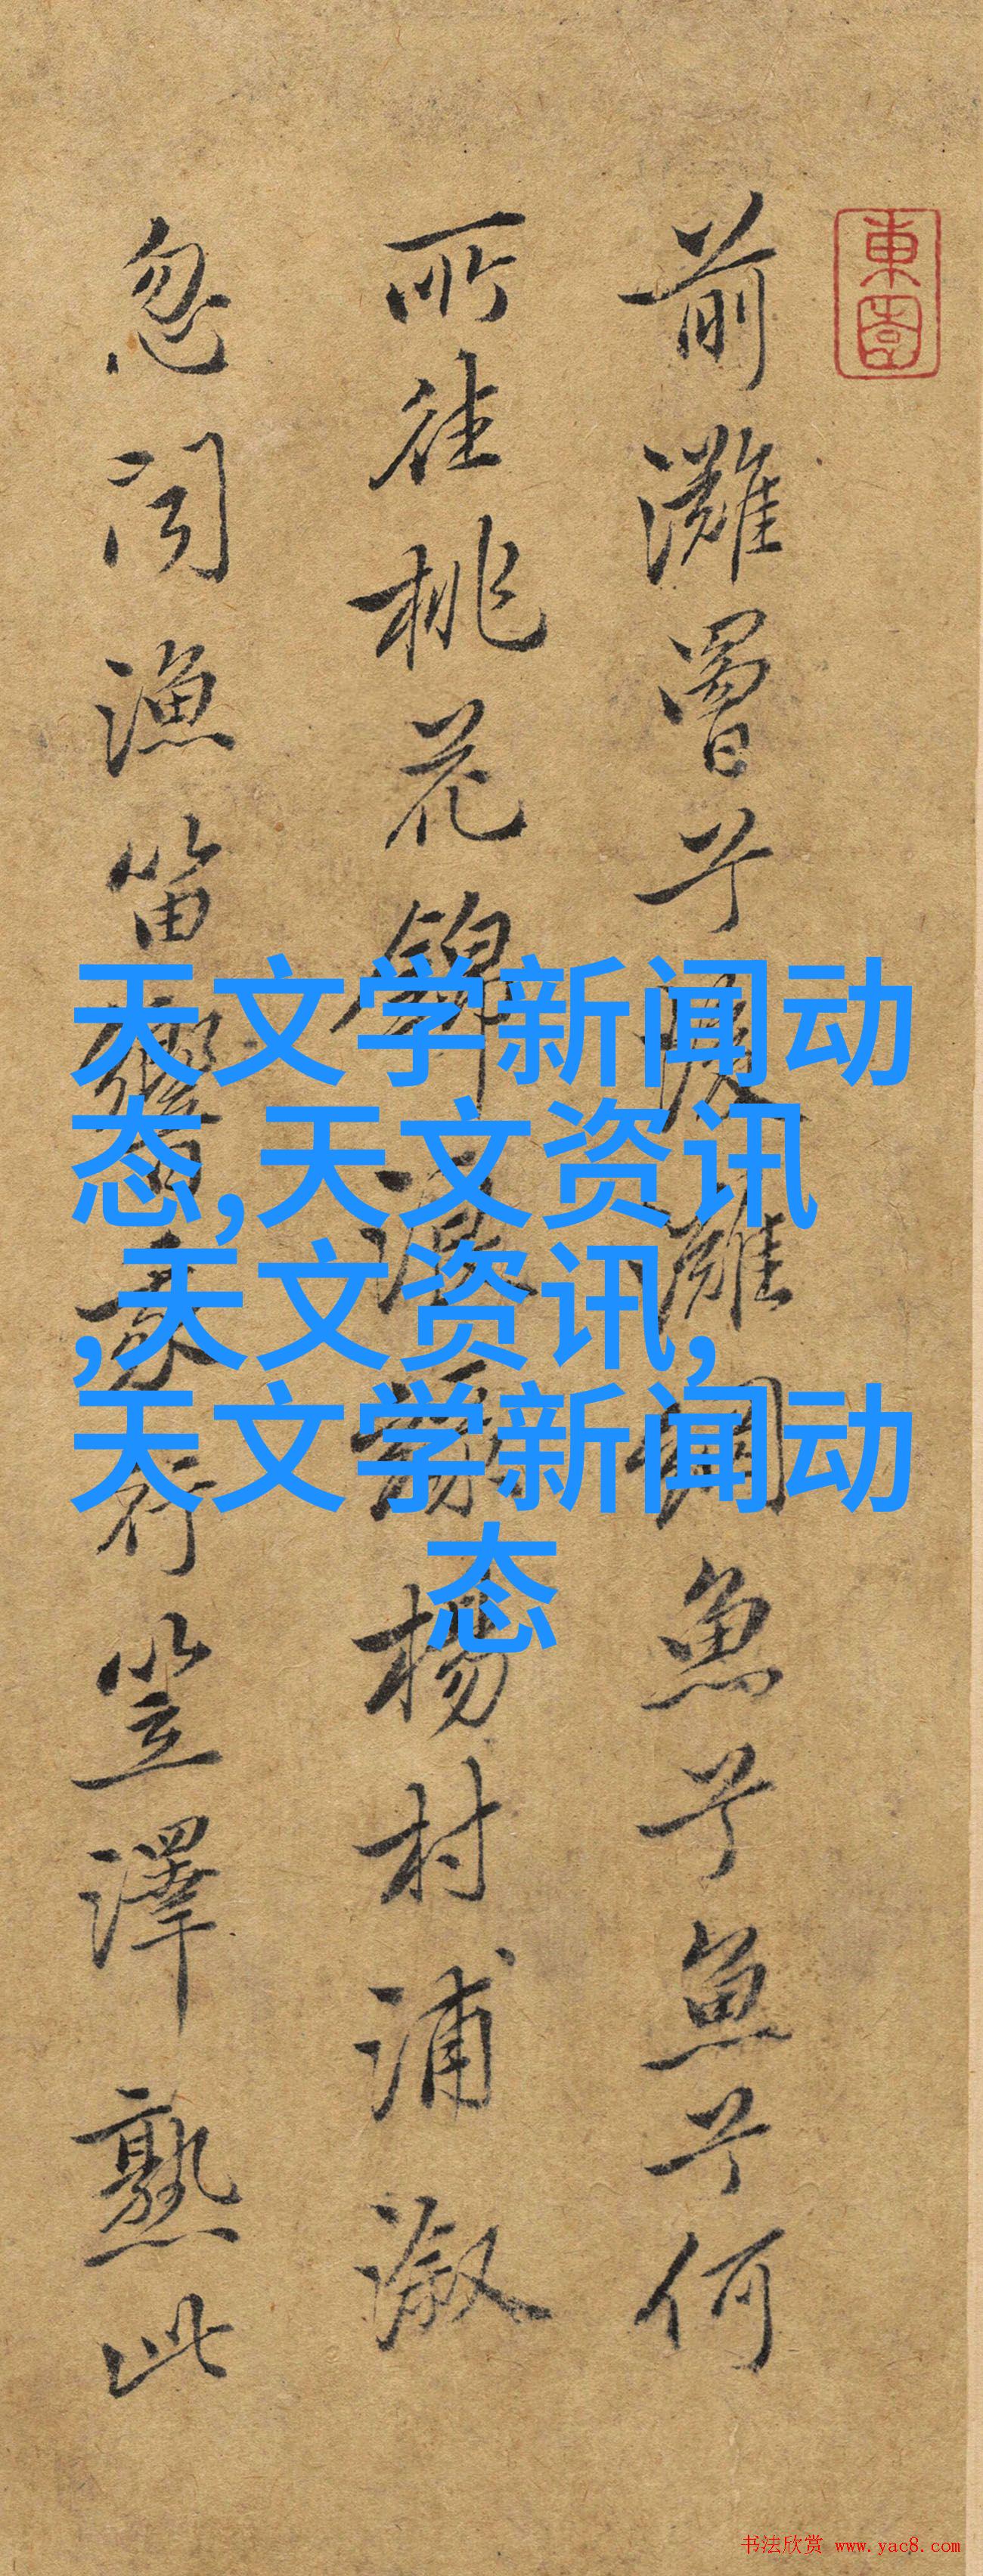 東園
前灘罾子後灘鉤魚子魚子何
所往桃花錦浪綠楊村浦溆
忽聞漁笛響豪行笠澤熟此
天文学新闻动
态,天文资讯
,天文资讯,
天文学新闻动
态
书法欣赏 www.yac8.com